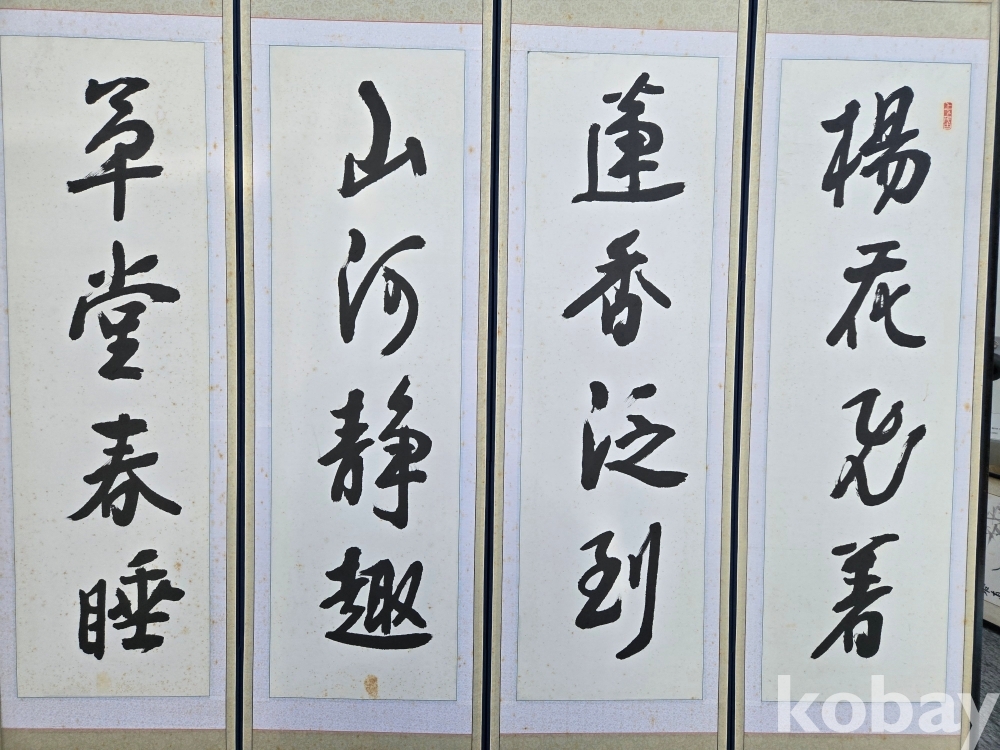 楊花飛着
蓮香泛到
山河静趣
草堂春睡
kobay